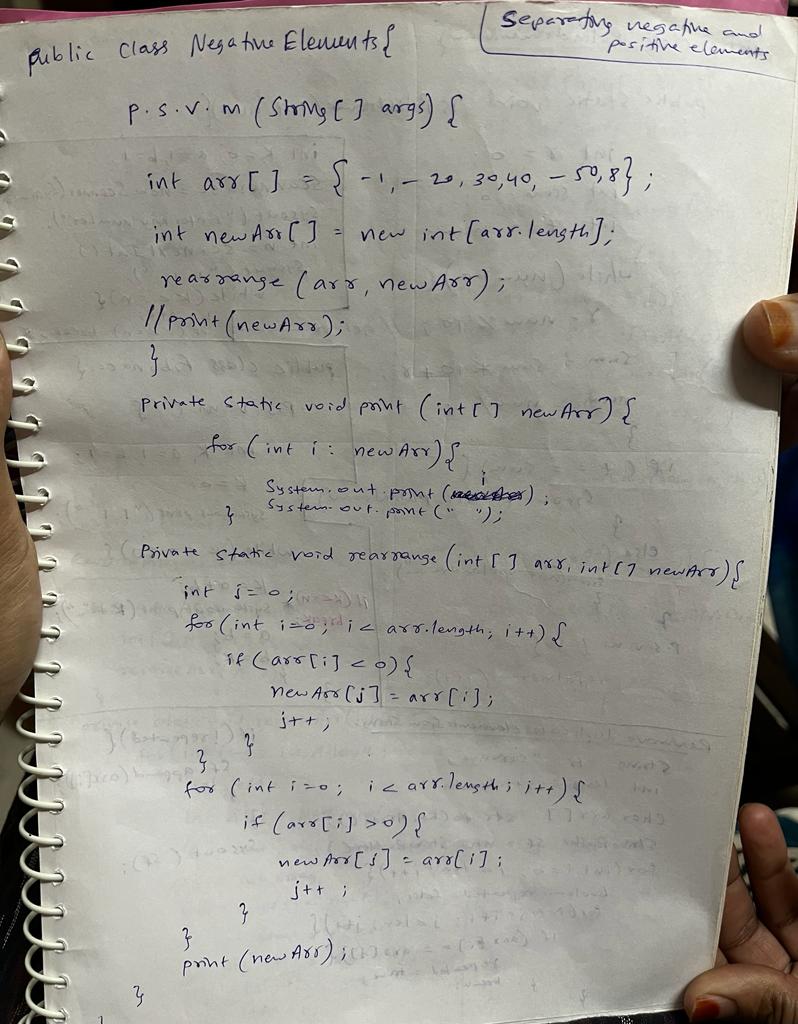 Separating negative and
positive elements
public Class Negative Elements{
p.s.v.m (String[] args) {
int arr[] = { -1, -20, 30,40, -50,8};
int newArr[] = new int[arr.length];
rearrange (arr, newArr);
//print(newArr);
}
private static void print (int[] newArr) {
for (int i : newArr){
System.out.print(i);
System.out.print(" ");
}
Private static void rearrange(int[] arr, int[] newArr){
int j=0;
for(int i=0; i< arr.length; i++) {
if (arr[i] < 0) {
newArr[j] = arr[i];
j++;
}
}
for (int i=0; i< arr.length; i++){
if (arr[i] >0) {
newArr[j] = arr[i];
j++;
}
}
print (newArr);
}
}